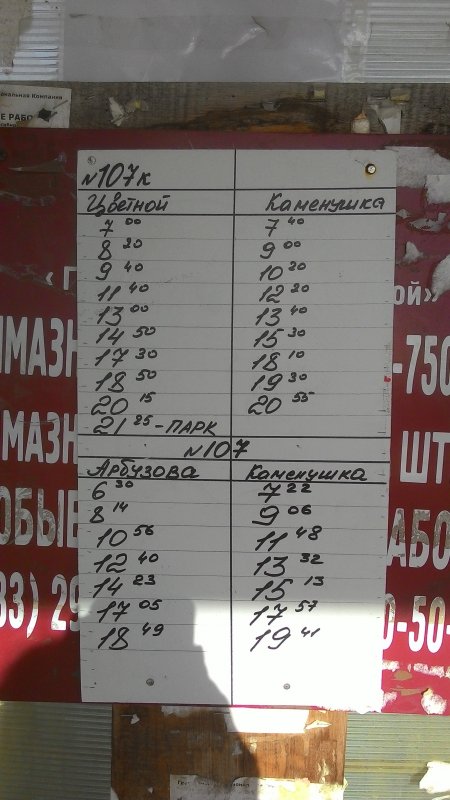 ональная Компания
Е РАБО
N107к
Цветной Каменушка
7 00 7 40
8 20 9 00
9 40 10 20
11 40 12 20
13 00 13 40
14 50 15 30
17 30 18 10
18 50 19 30
20 15 20 55
21 25 - ПАРК
N107
Арбузова Каменушка
6 30 7 22
8 14 9 06
10 56 11 48
12 40 13 32
14 23 15 13
17 05 17 57
18 49 19 41
« Г ой»
МАЗН -750
МАЗН ШТ
ОБЫЕ АБО
33) 29 0-50-